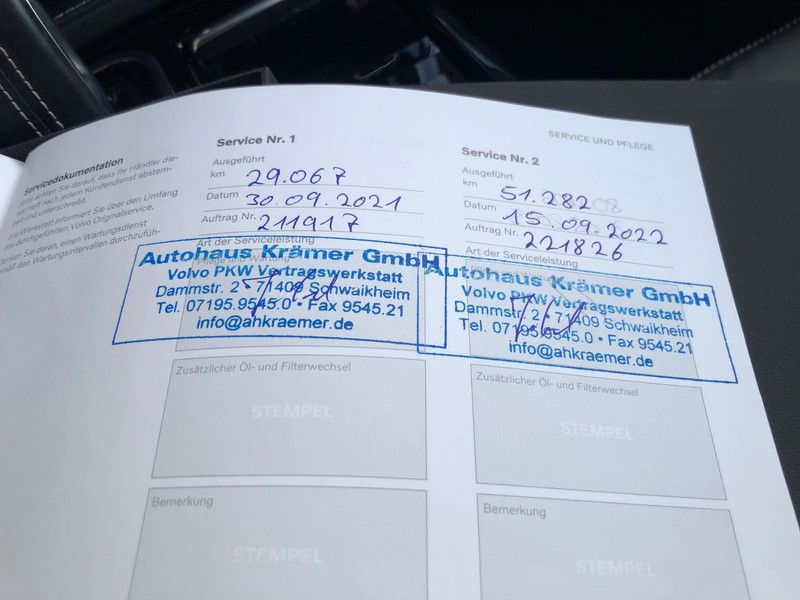 SERVICE UND PFLEGE
Servicedokumentation
Bitte achten Sie darauf, dass Ihr Händler die-
ses Heft nach jedem Kundendienst abstem-
und unterschreibt.
Werkstatt informiert Sie über den Umfang
durchgeführten Volvo Originalservice.
Sie daran, einen Wartungsdienst
den Wartungsintervallen durchzufüh-
Service Nr. 1
Ausgeführt
km 29.067
Datum 30.09.2021
Auftrag Nr. 211917
Art der Serviceleistung
Pflege und Wartung
Autohaus Krämer GmbH
Volvo PKW Vertragswerkstatt
Dammstr. 2 • 71409 Schwaikheim
Tel. 07195.9545.0 • Fax 9545.21
info@ahkraemer.de
Zusätzlicher Öl- und Filterwechsel
STEMPEL
Bemerkung
STEMPEL
Service Nr. 2
Ausgeführt
km 51.282
Datum 15.09.2022
Auftrag Nr. 221826
Art der Serviceleistung
Autohaus Krämer GmbH
Volvo PKW Vertragswerkstatt
Dammstr. 2 • 71409 Schwaikheim
Tel. 07195.9545.0 • Fax 9545.21
info@ahkraemer.de
Zusätzlicher Öl- und Filterwechsel
STEMPEL
Bemerkung
STEMPEL